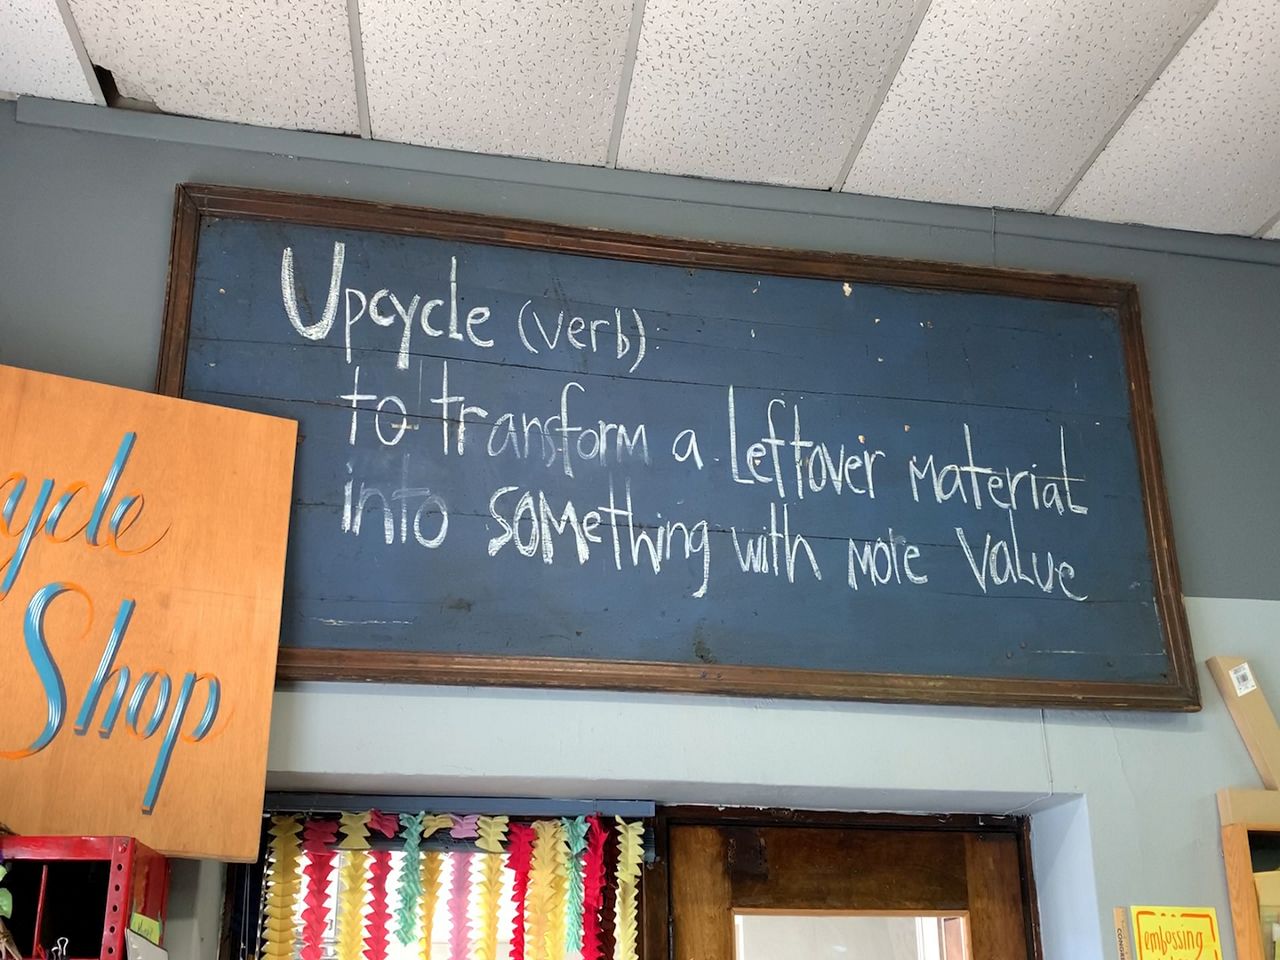 Upcycle (verb)
to transform a leftover material
into something with more value
ycle
Shop
embossing